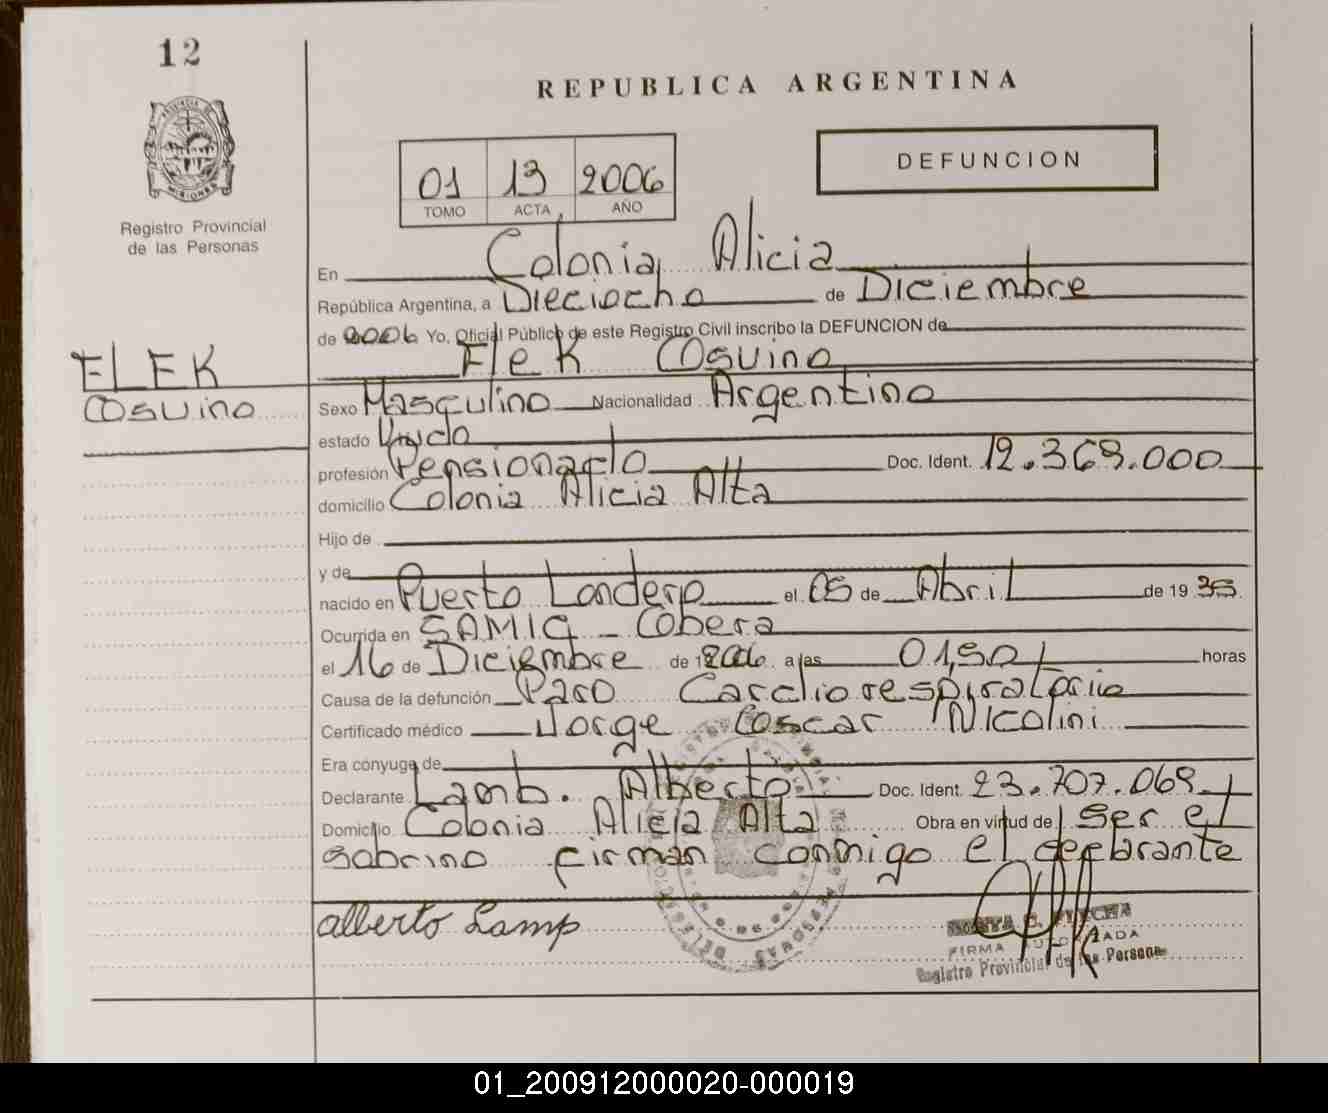 12
REPUBLICA ARGENTINA
01 13 2006
TOMO ACTA AÑO
DEFUNCION
Registro Provincial
de las Personas
En Colonia Alicia
República Argentina, a Dieciocho de Diciembre
de 2006 Yo, Oficial Público de este Registro Civil inscribo la DEFUNCION de
Flek Cosuino
FLEK
COSUino
Sexo Masculino Nacionalidad Argentino
estado Viudo
profesión Pensionado Doc. Ident. 12.368.000
domicilio Colonia Alicia Alta
Hijo de
y de
nacido en Puerto Londero el 05 de Abril de 19 35
Ocurrida en SAMIC - Cobera
el 16 de Diciembre de 2006 a las 01,50 horas
Causa de la defunción Paro Cardiorespiratorio
Certificado médico Jorge Coscar Nicolini
Era conyuge de
Declarante Lamb. Alberto Doc. Ident. 23.707.068
Domicilio Colonia Alicia Alta Obra en virtud de Ser el
sobrino firman conmigo el declarante
alberto Lamp
FIRMA
Registro Provincial de las Personas
01_200912000020-000019